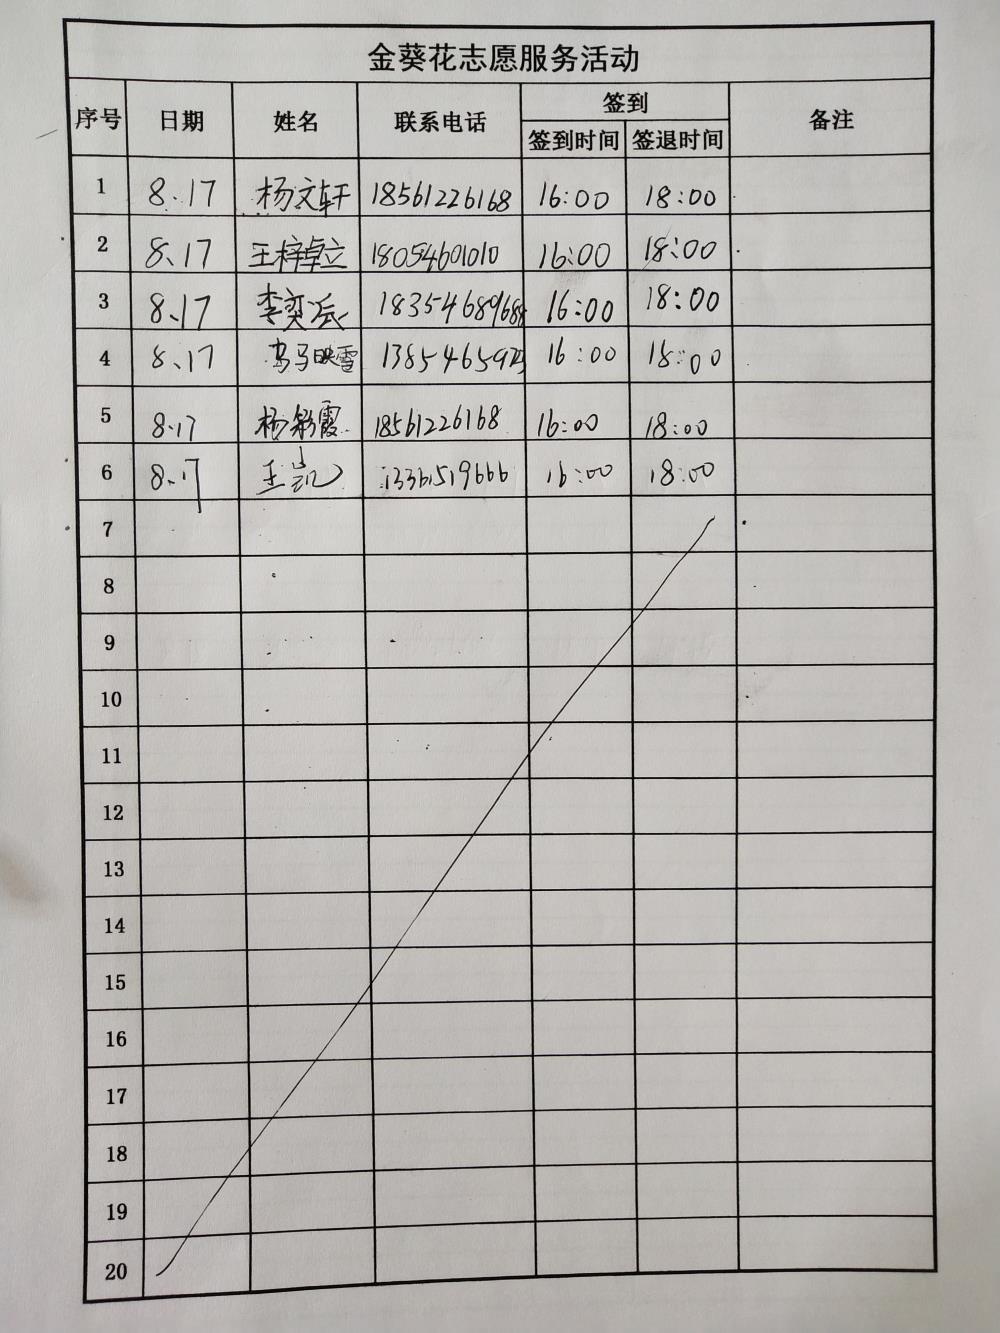 金葵花志愿服务活动
序号 日期 姓名 联系电话 签到 备注
签到时间 签退时间
1 8.17 杨文轩 18561226168 16:00 18:00
2 8、17 王梓卓立 18054601010 16:00 18:00
3 8、17 李奕派 18354689688 16:00 18:00
4 8、17 马映雪 16:00 18:00
5 8.17 杨彩霞 18561226168 16:00 18:00
6 8、17 王凯 13361519666 16:00 18:00
7
8
9
10
11
12
13
14
15
16
17
18
19
20